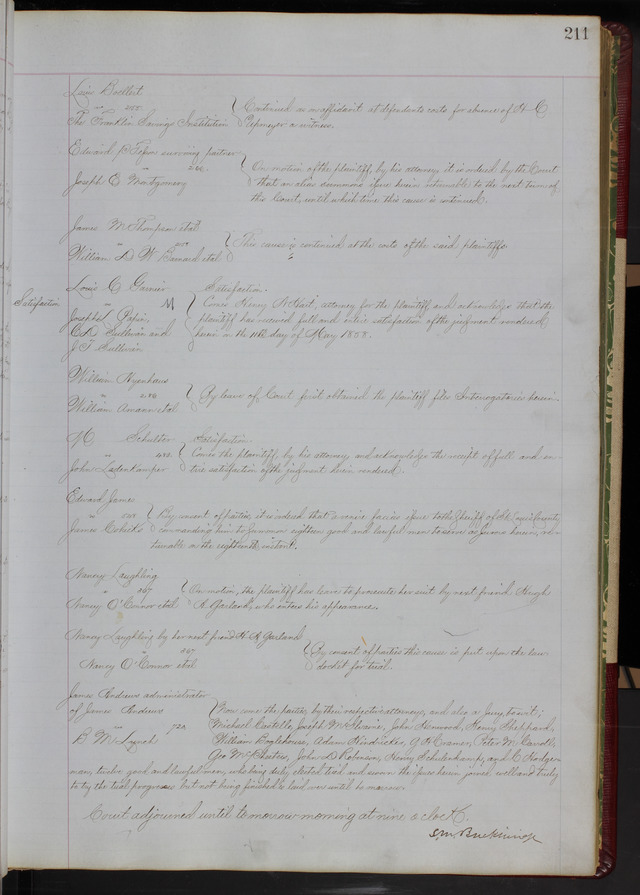 211
Louis Boellert
vs
The Franklin Savings Institution
Continued on affidavit at defendants costs for absence of H C
a witness.
Edward surviving partner
Joseph E Montgomery
On motion of the plaintiff, by his attorney it is ordered by the Court
that an alias summons issue herein returnable to the next term of
this Court, until which time this cause is continued.
James M Thompson et al
William D W Barnard et al
This cause is continued at the costs of the said plaintiffs
Satisfaction
Louis C Garnier
Joseph L Papin
C D Sullivan and
J T Sullivan
Satisfaction.
Comes Henry N Hart, attorney for the plaintiff and acknowledges that the
plaintiff has received full and entire satisfaction of the judgment rendered
herein on the 11th day of May 1858.
William
William Amann et al
By leave of Court first obtained the plaintiff files Interrogatories herein.
Schulder
John Ladenkamper
Satisfaction.
Comes the plaintiff, by his attorney and acknowledges the receipt of full and en-
tire satisfaction of the judgment herein rendered.
Edward James
James
By consent of parties it is ordered that a venire facias issue to the Sheriff of St Louis County
commanding him to summon eighteen good and lawful men to serve as jurors herein, re-
turnable on the eighteenth instant.
Nancy Laughling
267
Nancy O'Connor et al
On motion, the plaintiff has leave to prosecute her suit by next friend Hugh
R Garland, who enters his appearance.
Nancy Laughling by her next friend H R Garland
267
Nancy O'Connor et al
By consent of parties this cause is put upon the law
docket for trial.
James Andrews administrator
of James Andrews
B McLynch
Now come the parties, by their respective attorneys, and also a Jury, to wit;
Michael Costello, Joseph John Henry Sheppard,
William Adam Hindricks, G H Cramer, Peter M Carroll,
Geo John D Robman, Henry Schulenkamp, and C Hodge-
man, twelve good and lawful men, who being duly elected tried and sworn the issues herein joined, well and truly
to try the trial progresses but not being finished is laid over until to morrow.
Court adjourned until tomorrow morning at nine o'clock.